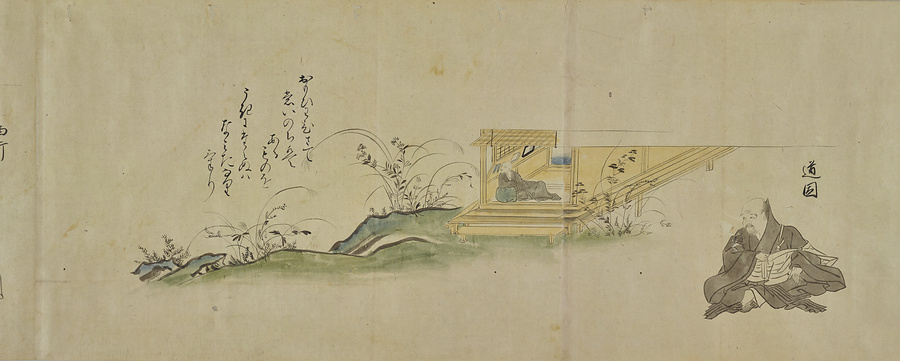 道因
おもひわひさて
もいのちは
あるものを
うきにたへぬは
なみたなり
けり